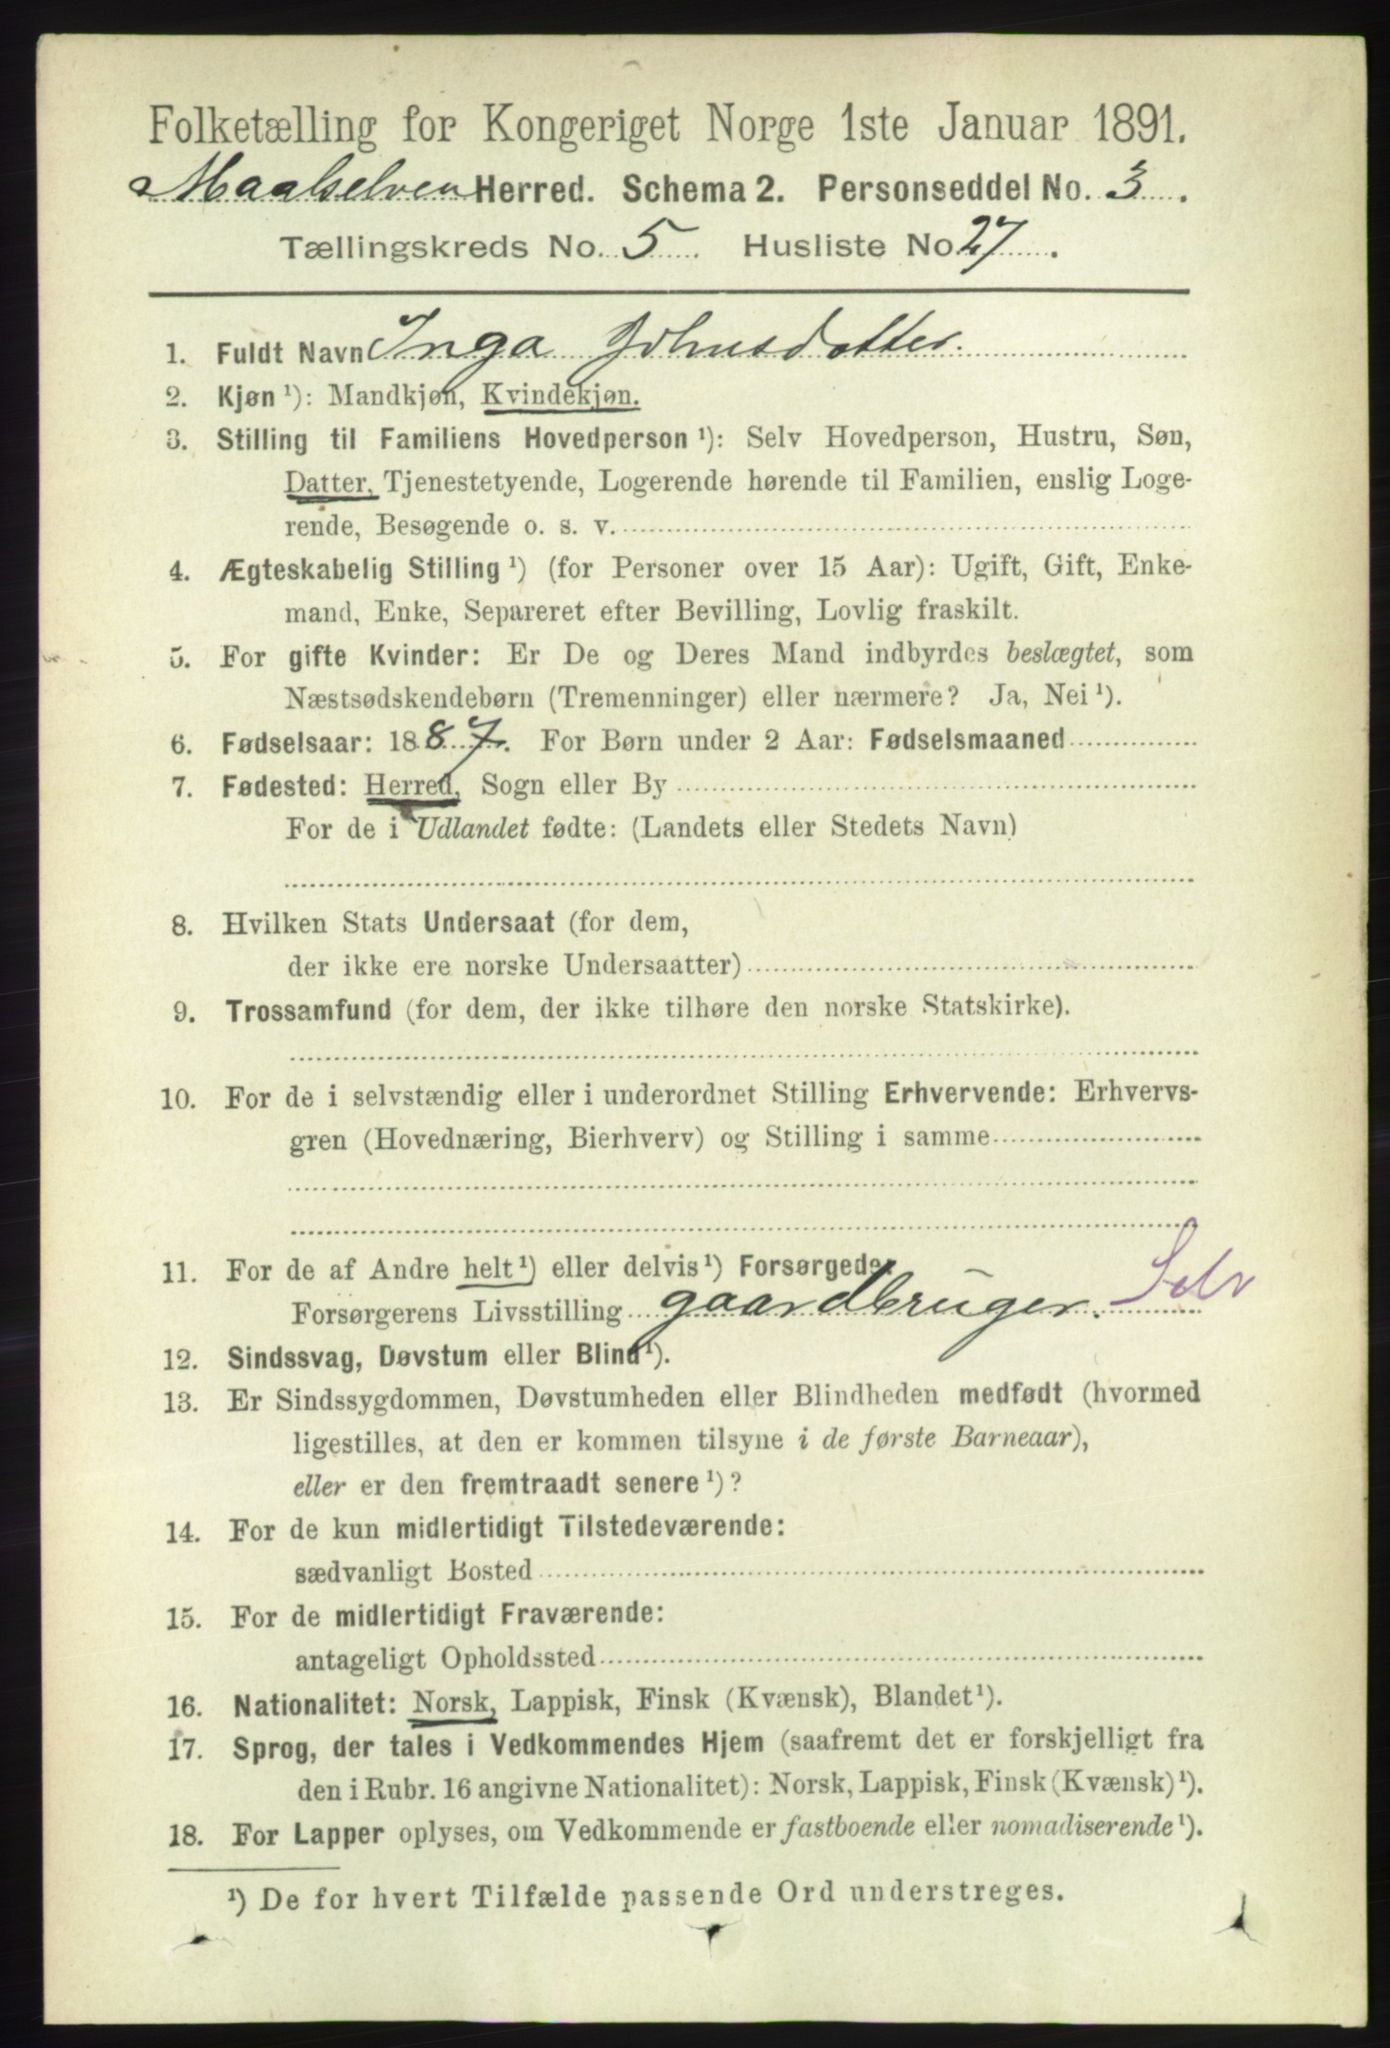 Folketælling for Kongeriget Norge 1ste Januar 1891.
Maalselven Herred. Schema 2. Personseddel No. 3.
Tællingskreds No. 5 Husliste No 27.
1. Fuldt Navn Inga Johnsdatter.
2. Kjøn ¹): Mandkjøn, Kvindekjøn.
3. Stilling til Familiens Hovedperson ¹): Selv Hovedperson, Hustru, Søn,
Datter, Tjenestetyende, Logerende hørende til Familien, enslig Loge-
rende, Besøgende o. s. v.
4. Ægteskabelig Stilling ¹) (for Personer over 15 Aar): Ugift, Gift, Enke-
mand, Enke, Separeret efter Bevilling, Lovlig fraskilt.
5. For gifte Kvinder: Er De og Deres Mand indbyrdes beslægtet, som
Næstsødskendebørn (Tremenninger) eller nærmere? Ja, Nei ¹).
6. Fødselsaar: 1887. For Børn under 2 Aar: Fødselsmaaned
7. Fødested: Herred, Sogn eller By
For de i Udlandet fødte: (Landets eller Stedets Navn)
8. Hvilken Stats Undersaat (for dem,
der ikke ere norske Undersaatter)
9. Trossamfund (for dem, der ikke tilhøre den norske Statskirke).
10. For de i selvstændig eller i underordnet Stilling Erhvervende: Erhvervs-
gren (Hovednæring, Bierhverv) og Stilling i samme
11. For de af Andre helt ¹) eller delvis ¹) Forsørgede:
Forsørgerens Livsstilling gaardbruger. Selv
12. Sindssvag, Døvstum eller Blind ¹).
13. Er Sindssygdommen, Døvstumheden eller Blindheden medfødt (hvormed
ligestilles, at den er kommen tilsyne i de første Barneaar),
eller er den fremtraadt senere ¹)?
14. For de kun midlertidigt Tilstedeværende:
sædvanligt Bosted
15. For de midlertidigt Fraværende:
antageligt Opholdssted
16. Nationalitet: Norsk, Lappisk, Finsk (Kvænsk), Blandet ¹).
17. Sprog, der tales i Vedkommendes Hjem (saafremt det er forskjelligt fra
den i Rubr. 16 angivne Nationalitet): Norsk, Lappisk, Finsk (Kvænsk) ¹).
18. For Lapper oplyses, om Vedkommende er fastboende eller nomadiserende ¹).
¹) De for hvert Tilfælde passende Ord understreges.